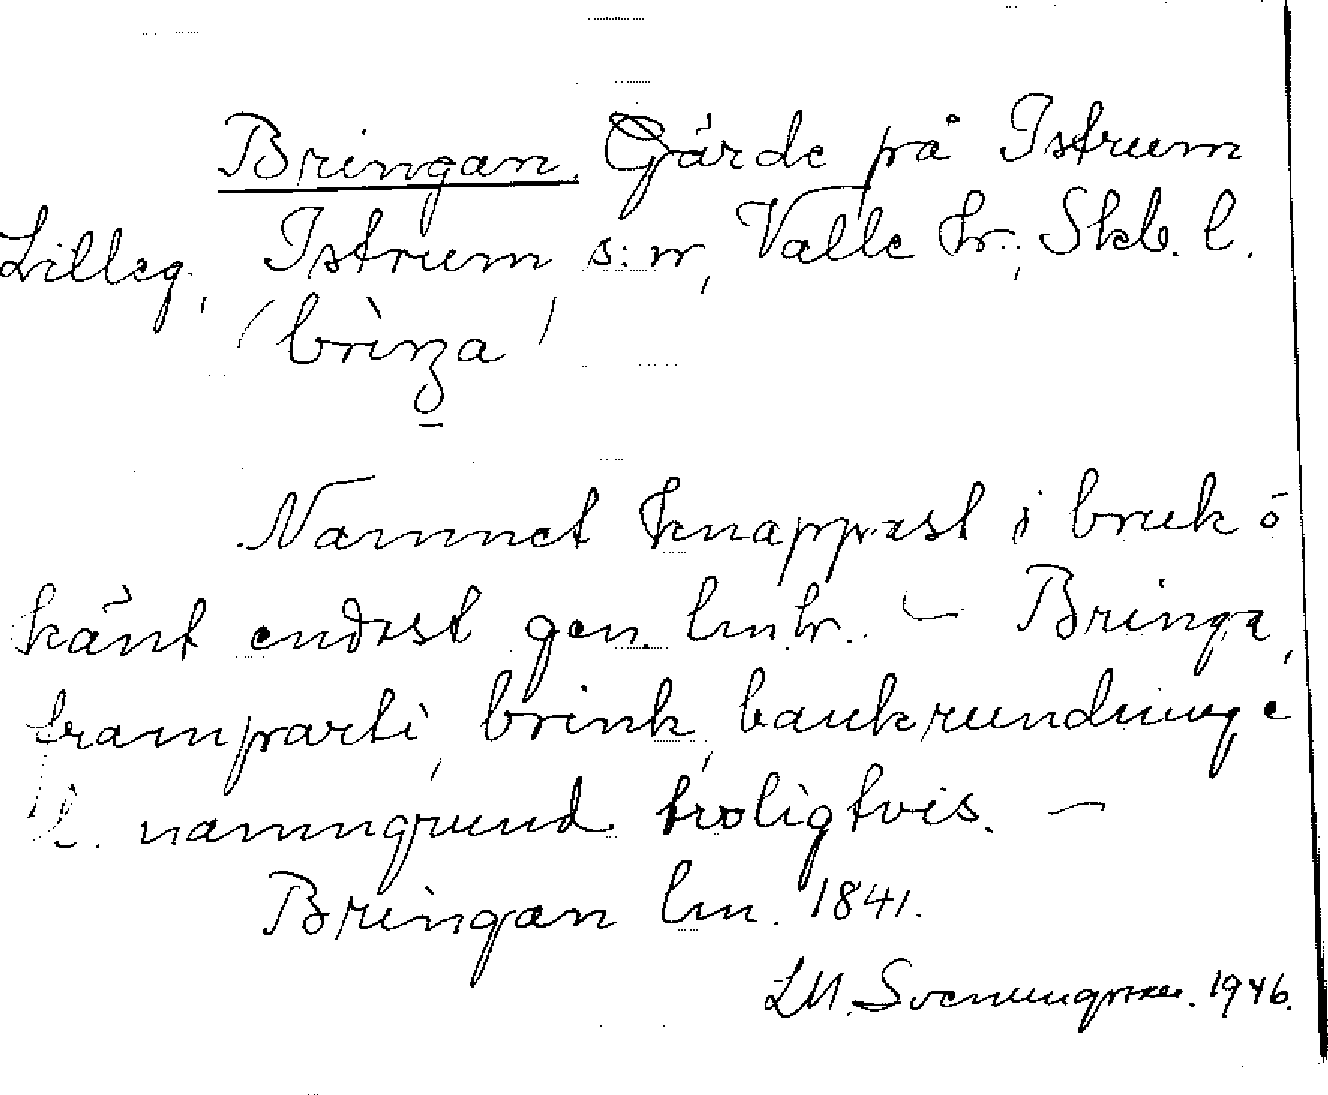 Bringan. Gärde på Istrum
Lilleg., Istrum s:n, Valle hr., Skb. l.
/brìŋa/
Namnet knappast i bruk ó
känt endast gen. lmhr. – Bringa,
framparti, brink, bankrundning e
l. namngrund troligtvis. –
Bringan lm. 1841.
LM. Svenungsson. 1946.